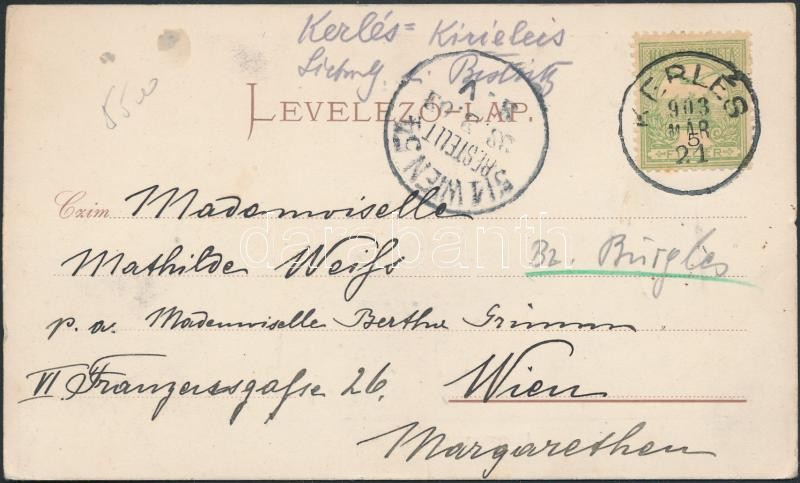 Kerlés = Kirieleis
Bistritz
5500
LEVELEZŐ-LAP.
KERLÉS
903
MÁR
5
21
5/1 WIEN 54
BESTELLT
Czim
Mademoiselle
Mathilde Weiß
Bz. Burgles
p. a. Mademoiselle Berthe Grimm
VI Franzensgasse 26. Wien
Margarethen
darabanth